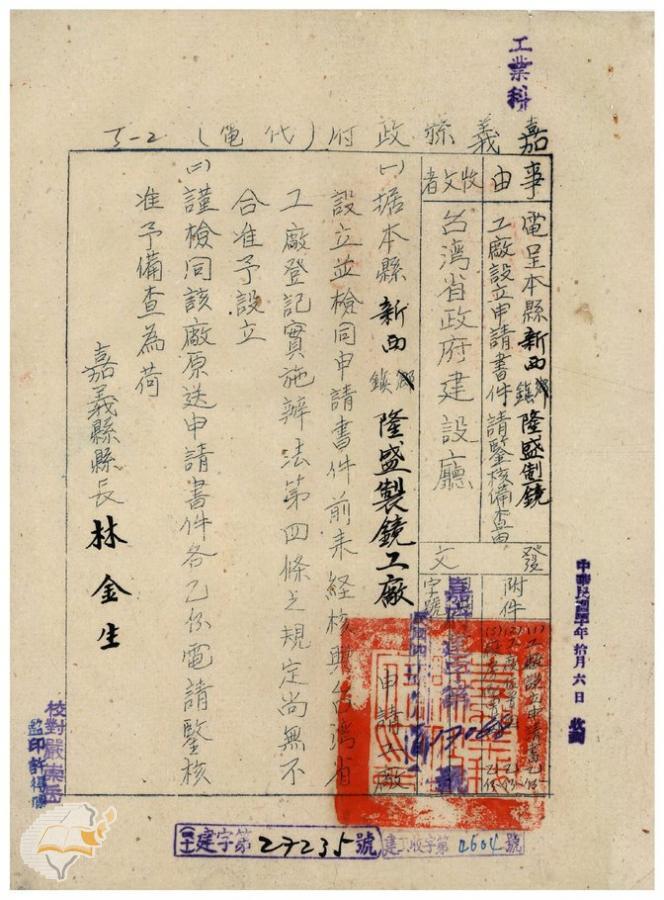 工業科
嘉義縣政府(代電) 5-2
事由
電呈本縣新西鎮隆盛製鏡
工廠設立申請書件請鑒核備查由
收文者
台湾省政府建設廳
發文
附件
字號
(一)據本縣新西鎮隆盛製鏡工廠申請工廠
設立並檢同申請書件前来経核與台湾省
工廠登記實施辦法第四條之規定尚無不
合准予設立
(二)謹檢同該廠原送申請書件各乙份電請鑒核
准予備查為荷
嘉義縣縣長 林金生
年拾月六日
校對
監印
建字第27235號
建工收字第 號